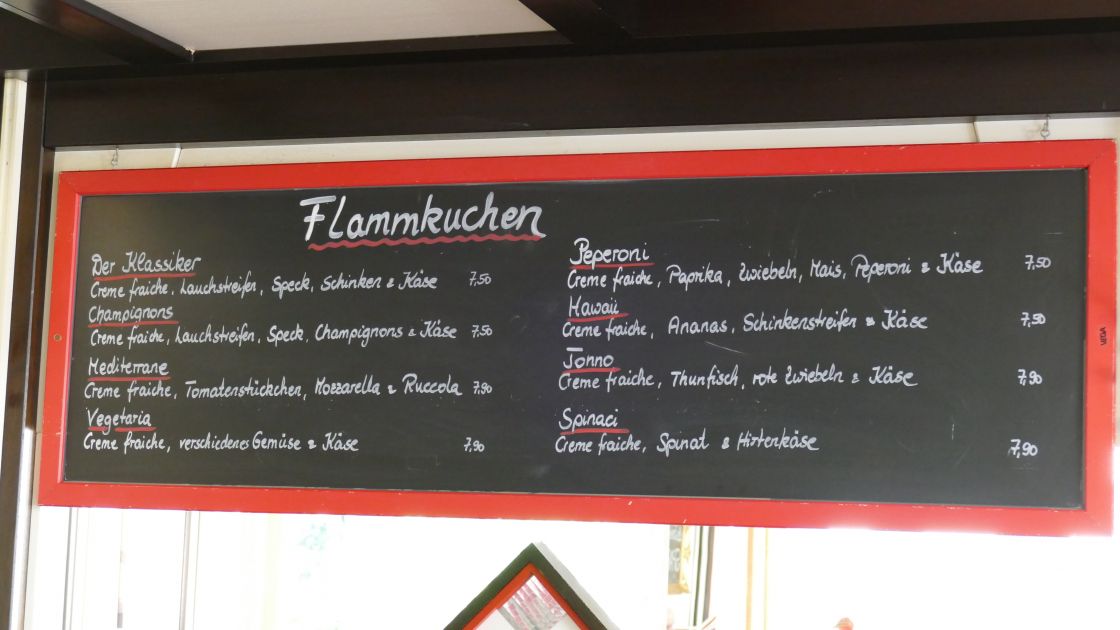 Flammkuchen
Der Klassiker
Creme fraiche, Lauchstreifen, Speck, Schinken & Käse 7,50
Champignons
Creme fraiche, Lauchstreifen, Speck, Champignons & Käse 7,50
Mediterrane
Creme fraiche, Tomatenstückchen, Mozzarella & Ruccola 7,90
Vegetaria
Creme fraiche, verschiedenes Gemüse & Käse 7,90
Peperoni
Creme fraiche, Paprika, Zwiebeln, Mais, Peperoni & Käse 7,50
Hawaii
Creme fraiche, Ananas, Schinkenstreifen & Käse 7,50
Tonno
Creme fraiche, Thunfisch, rote Zwiebeln & Käse 7,90
Spinaci
Creme fraiche, Spinat & Hirtenkäse 7,90
VEGA